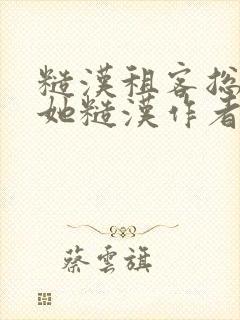 糙漢租客捴
她糙漢作者
蔡雲旗